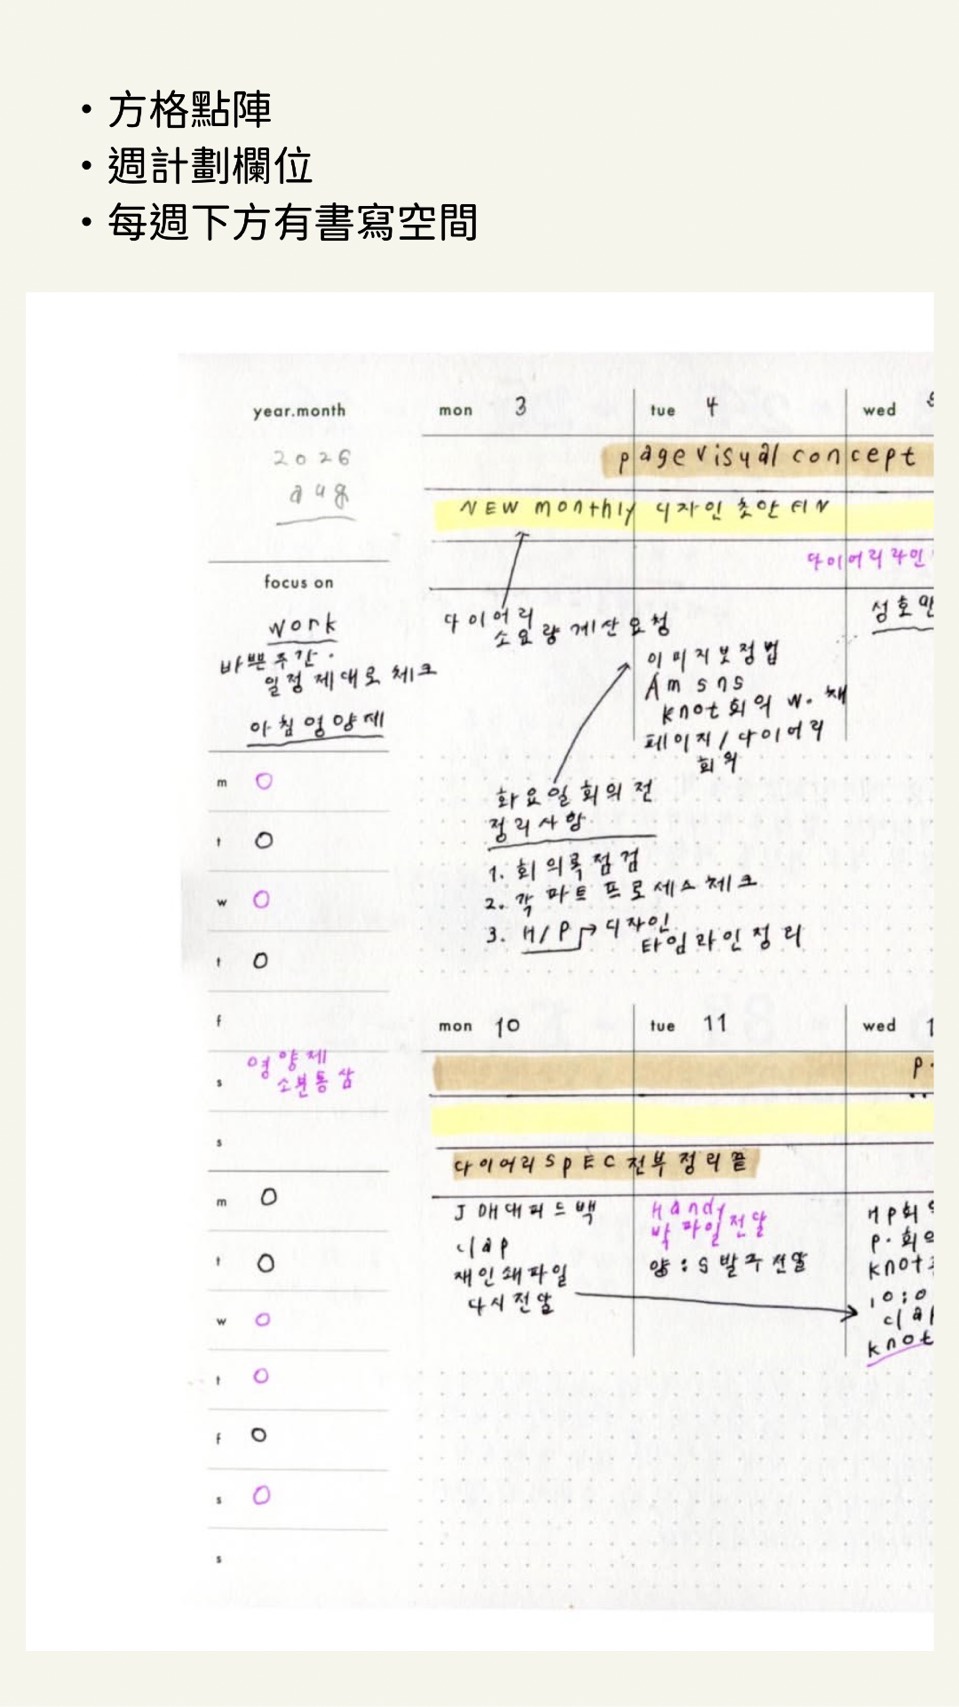 ・方格點陣
・週計劃欄位
・每週下方有書寫空間
year.month
2026
aug
focus on
work
바쁜주간.
일정 제대로 체크
아침영양제
m
t
w
t
f
s 영양제
소분통 삼
s
m
t
w
t
f
s
s
mon 3 tue 4 wed
page visual concept
NEW monthly 디자인 초안 FIN
다이어리라인
다이어리
소요량 계산요청
이미지보정법
Am sns
knot회의 w.
페이지/다이어리
회의
화요일회의전
정리사항
1. 회의록점검
2. 각 파트 프로세스체크
3. H/P → 디자인
타임라인정리
mon 10 tue 11 wed 1
p.
다이어리SPEC전부정리끝
J 매대피드백
clap
재인쇄파일
다시전달
Handy
박 파일전달
양:S발주전달
HP회
P.회의
knot
10:0
clap
knot